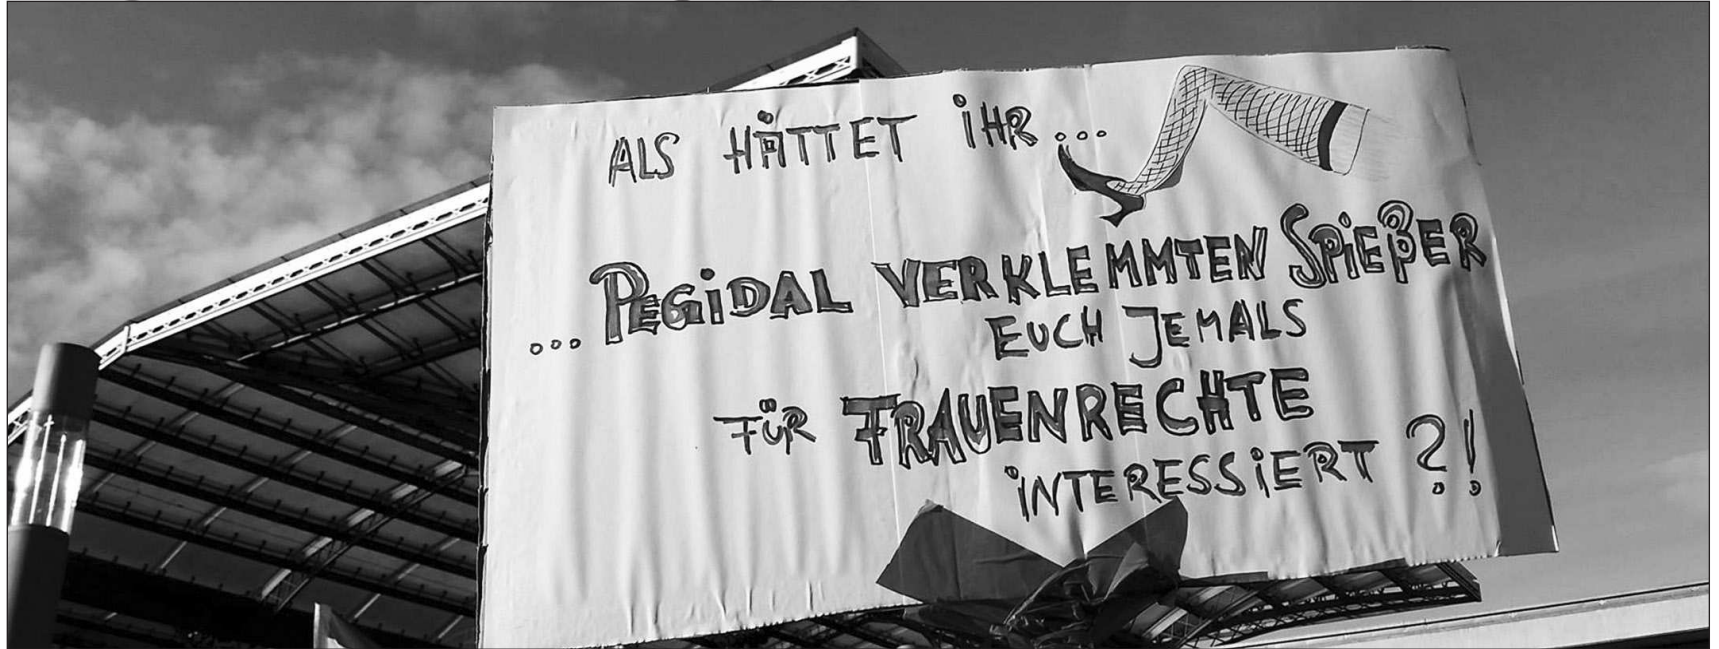 ALS HÄTTET IHR...
... PEGIDAL VERKLEMMTEN SPIEßER
EUCH JEMALS
FÜR FRAUENRECHTE
INTERESSIERT ?!